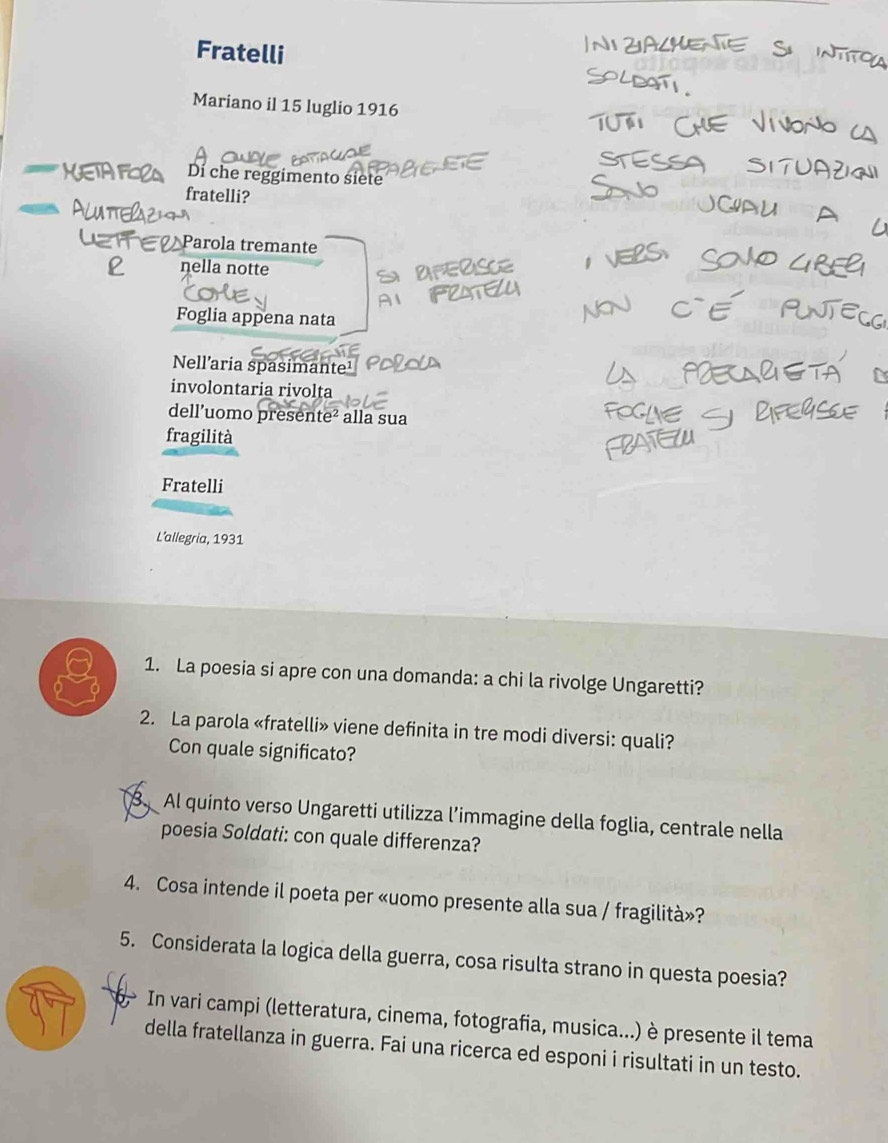 Fratelli
INIZIALMENTE SI INTITOLA
SOLDATI.
Mariano il 15 luglio 1916
TUTTI CHE VIVONO LA
STESSA SITUAZIONI
SONO UGUALI A
A QUALE BATTAGLIONE APPARTENETE
METAFORA
Di che reggimento siete
fratelli?
ALLITTERAZION
LETTERA
R
Parola tremante
nella notte
SI RIFERISCE
AI FRATELLI
I VERSI SONO LIBERI
NON C'É PUNTEGGI
COME
Foglia appena nata
SOFFERENTE
Nell'aria spasimante¹ PAROLA
LA PRECARIETÀ
involontaria rivolta
CONSAPEVOLE
FOGLIE SI RIFERISCE
FRATELLI
dell'uomo presente² alla sua
fragilità
Fratelli
L'allegria, 1931
1. La poesia si apre con una domanda: a chi la rivolge Ungaretti?
2. La parola «fratelli» viene definita in tre modi diversi: quali?
Con quale significato?
3. Al quinto verso Ungaretti utilizza l'immagine della foglia, centrale nella
poesia Soldati: con quale differenza?
4. Cosa intende il poeta per «uomo presente alla sua / fragilità»?
5. Considerata la logica della guerra, cosa risulta strano in questa poesia?
6 In vari campi (letteratura, cinema, fotografia, musica...) è presente il tema
della fratellanza in guerra. Fai una ricerca ed esponi i risultati in un testo.